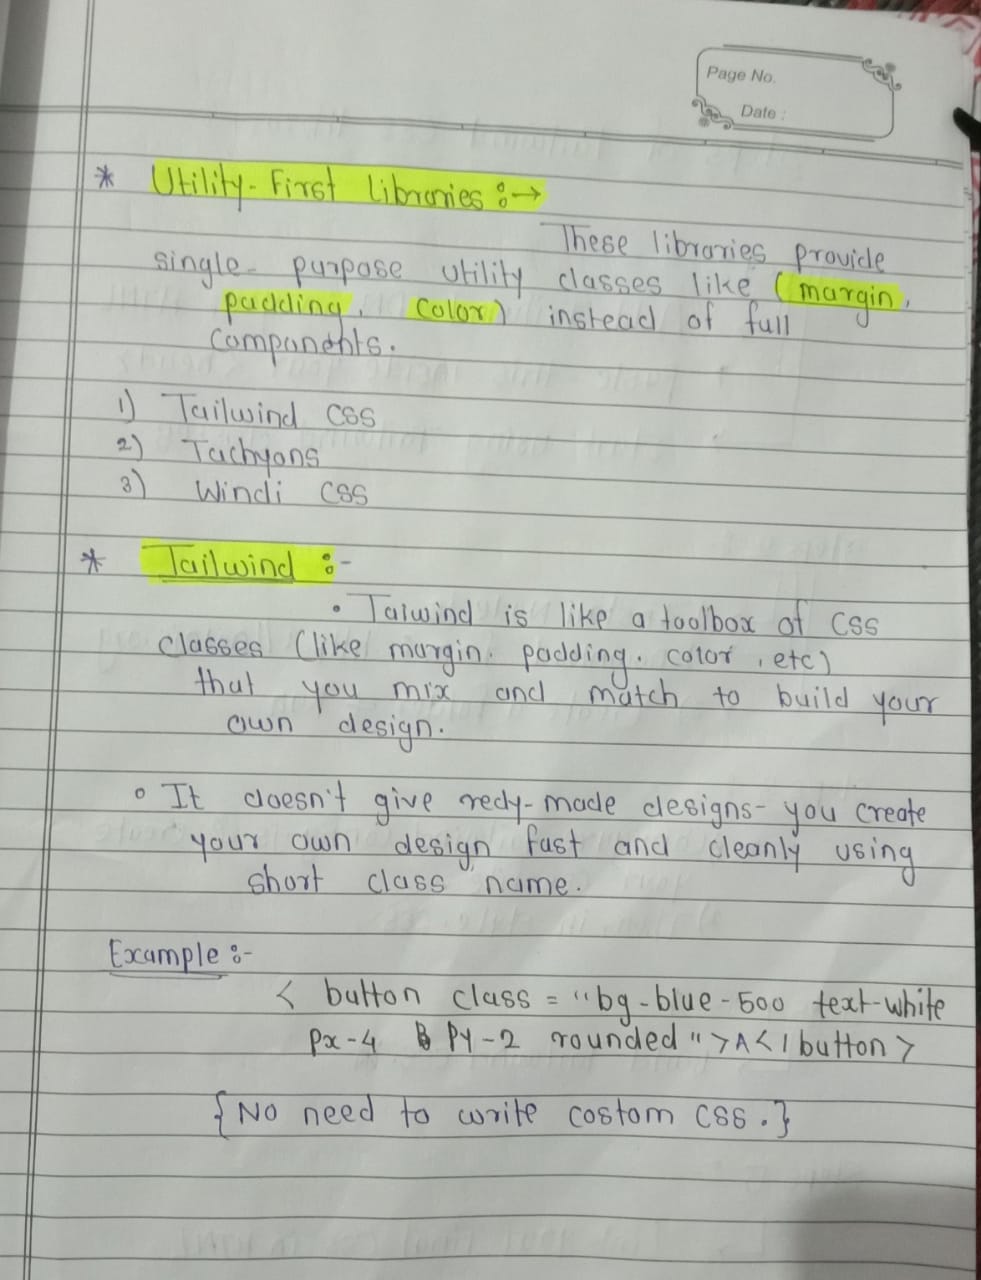 Page No.
Date :
* Utility-First libraries :→
These libraries provide
single-purpose utility classes like (margin,
padding, color) instead of full
components.
1) Tailwind CSS
2) Tachyons
3) Windi CSS
* Tailwind :-
• Taiwind is like a toolbox of CSS
classes (like margin. padding. color , etc)
that you mix and match to build your
own design.
• It doesn't give redy-made designs- you create
your own design fast and cleanly using
short class name.
Example :-
< button class = "bg-blue-500 text-white
px-4 py-2 rounded ">A</button>
{No need to write costom CSS.}